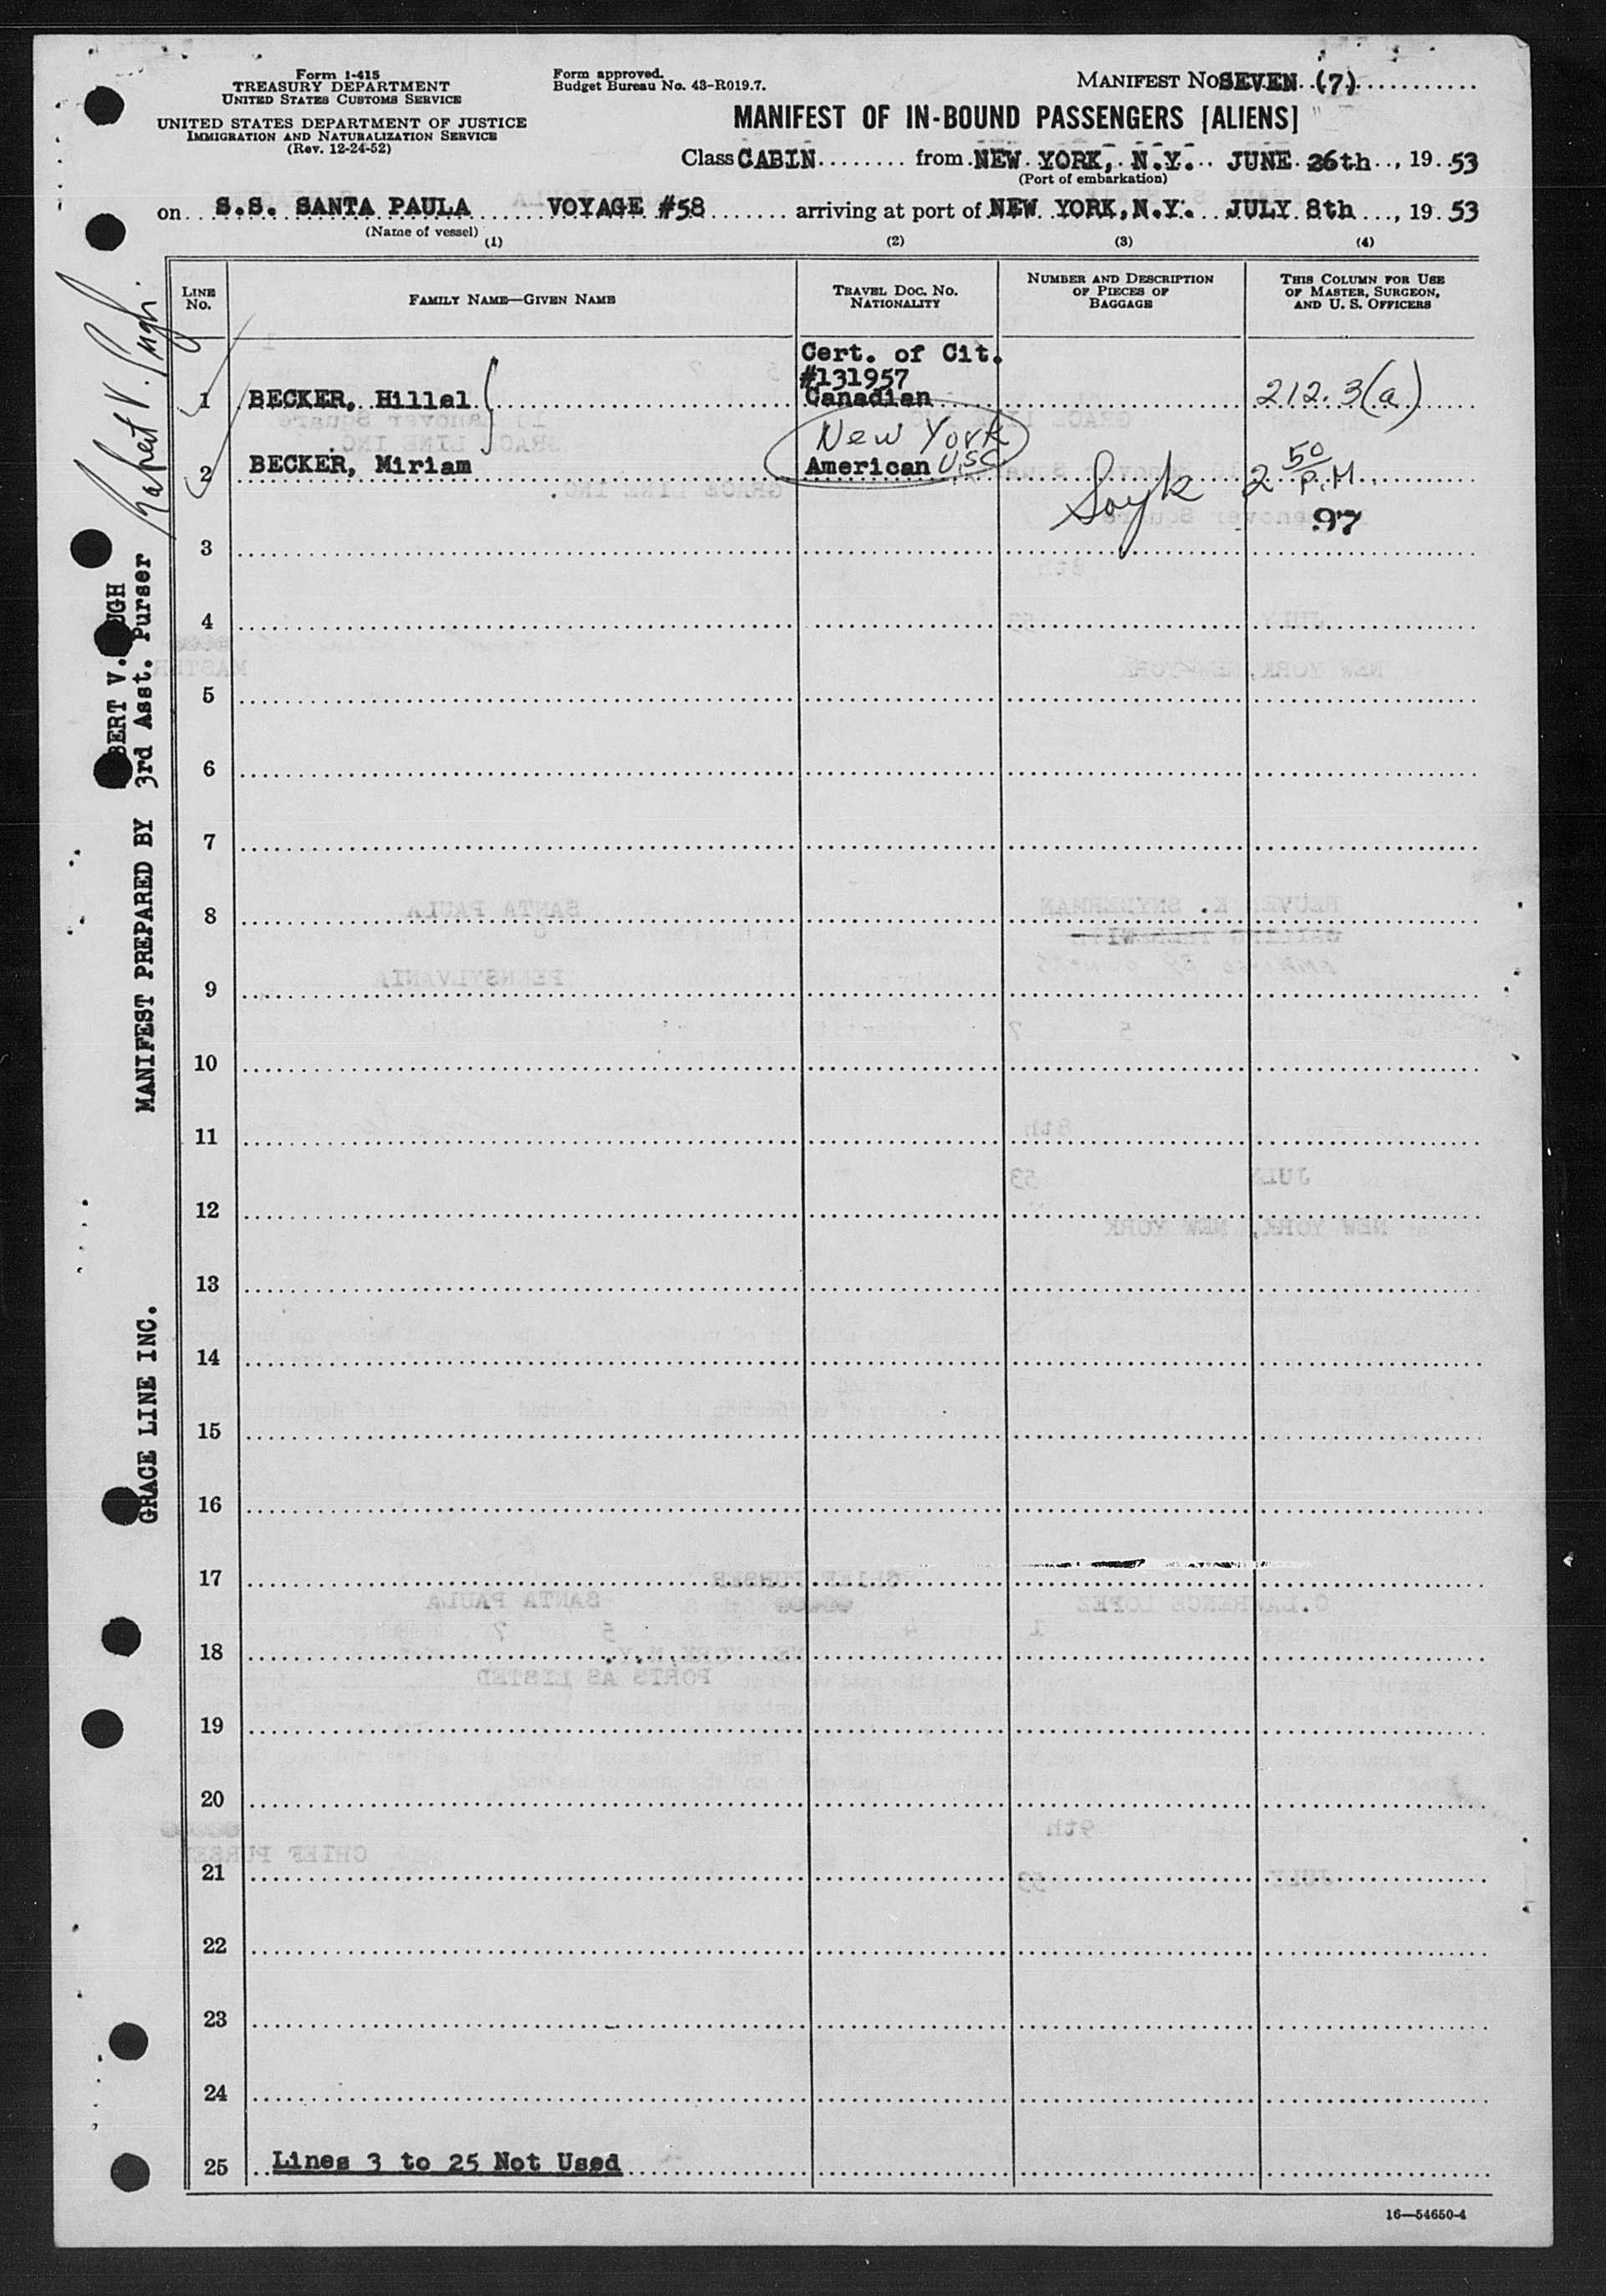 Form I-415
TREASURY DEPARTMENT
UNITED STATES CUSTOMS SERVICE
UNITED STATES DEPARTMENT OF JUSTICE
IMMIGRATION AND NATURALIZATION SERVICE
(Rev. 12-24-52)
Form approved.
Budget Bureau No. 43-R019.7.
MANIFEST No SEVEN (7)
MANIFEST OF IN-BOUND PASSENGERS [ALIENS]
Class CABIN from NEW YORK, N.Y. JUNE 26th, 19 53
(Port of embarkation)
on S.S. SANTA PAULA VOYAGE #58 arriving at port of NEW YORK, N.Y. JULY 8th, 19 53
(Name of vessel)
(1) (2) (3) (4)
LINE No.
FAMILY NAME—GIVEN NAME
TRAVEL DOC. NO. NATIONALITY
NUMBER AND DESCRIPTION OF PIECES OF BAGGAGE
THIS COLUMN FOR USE OF MASTER, SURGEON, AND U. S. OFFICERS
Cert. of Cit.
#131957
1 BECKER, Hillel Canadian 212.3(a)
New York
2 BECKER, Miriam American U.S.C. 2 50 P.M.
97
3
4
5
6
7
8
9
10
11
12
13
14
15
16
17
18
19
20
21
22
23
24
25 Lines 3 to 25 Not Used
16—54650-4
GRACE LINE INC. MANIFEST PREPARED BY
BERT V. UGH
3rd Asst. Purser